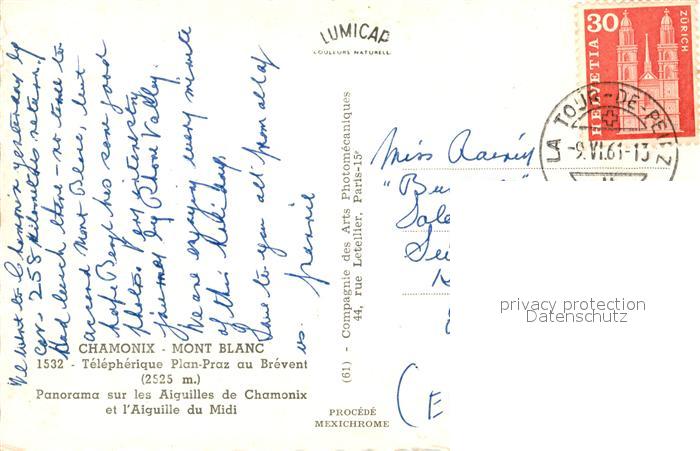 LUMICAP
COULEURS NATURELLES
30
HELVETIA
ZÜRICH
LA TOUR-DE-PEILZ
-9.VI.61-13
We went to Chamonix yesterday by
car - 258 kilometres return.
Had lunch there - no time to
ascend Mont Blanc, but
hope Beryl has some good
photos. Very interesting
journey by Rhone Valley.
We are enjoying every minute
of this holiday.
Love to you all from all of
us.
Miss
"
(E
CHAMONIX - MONT BLANC
1532 - Téléphérique Plan-Praz au Brévent
(2525 m.)
Panorama sur les Aiguilles de Chamonix
et l'Aiguille du Midi
(61) - Compagnie des Arts Photomécaniques
44, rue Letellier, Paris-15e
PROCÉDÉ
MEXICHROME
privacy protection
Datenschutz